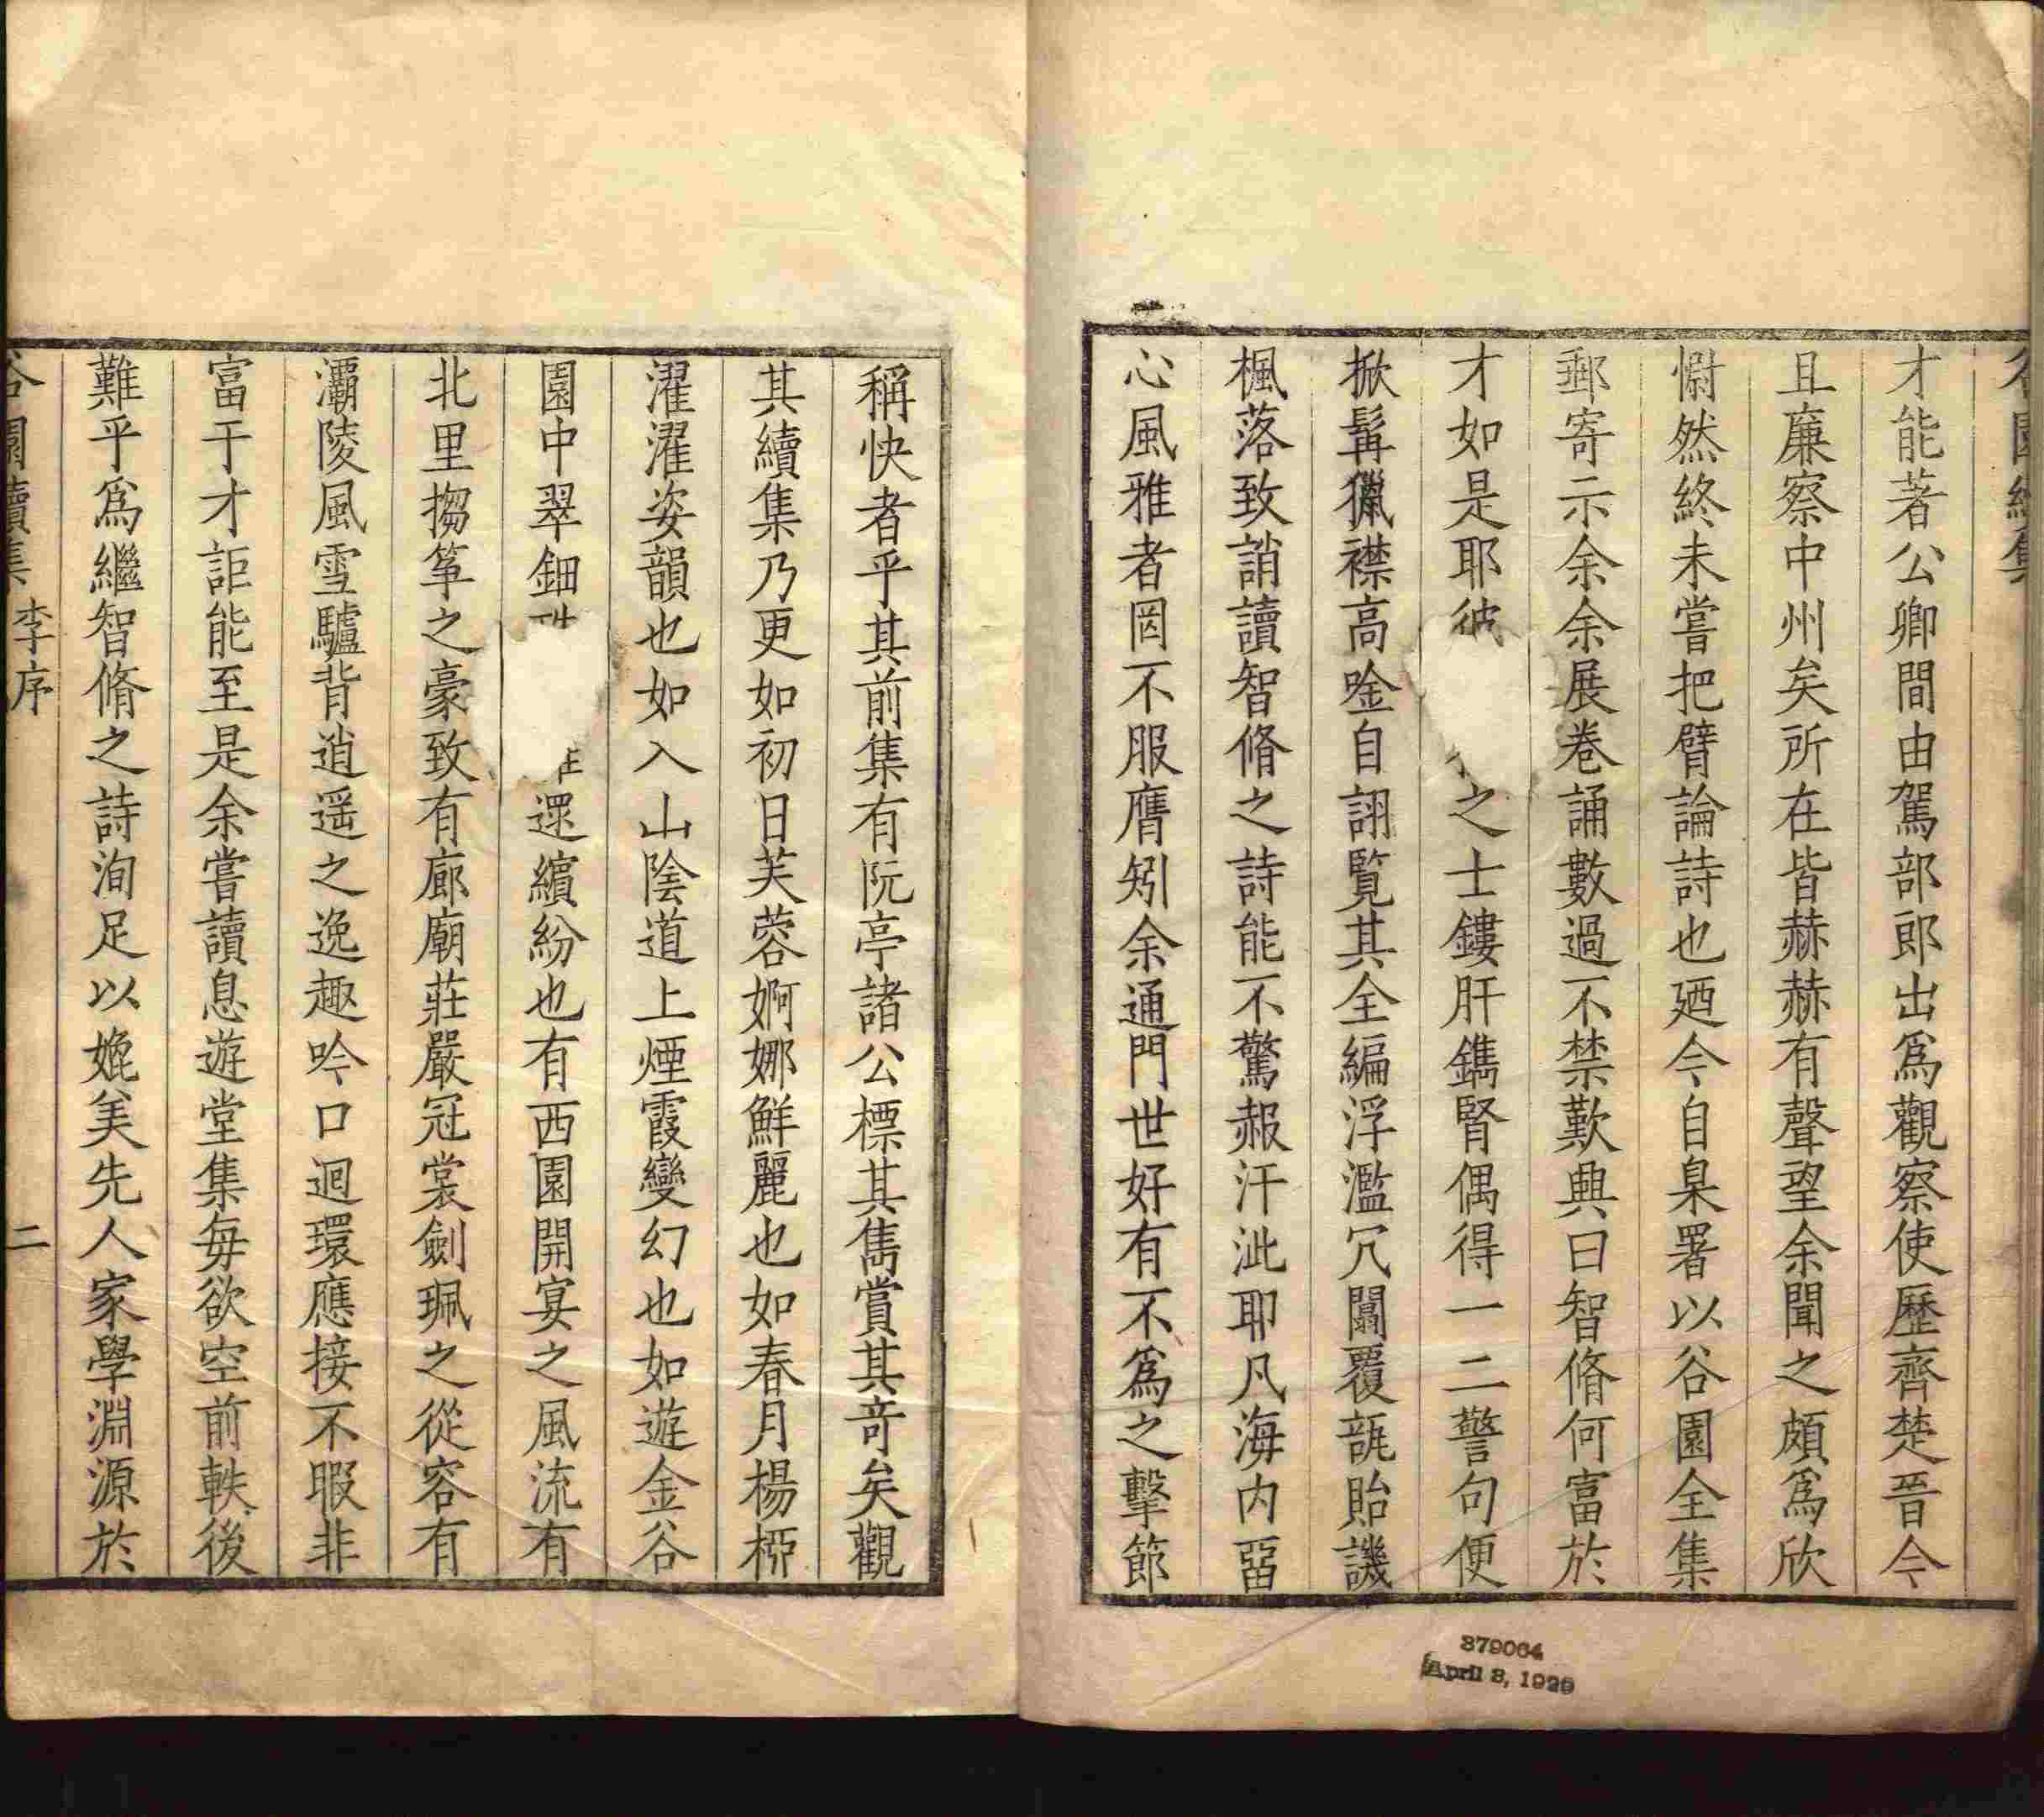 谷園續集
才能著公卿間由駕部郎出爲觀察使歷齊楚晉今
且廉察中州矣所在皆赫赫有聲望余聞之頗爲欣
慰然終未嘗把臂論詩也廼今自臬署以谷園全集
郵寄示余余展卷誦數過不禁歎興曰智脩何富於
才如是耶彼之士鏤肝鐫腎偶得一二警句便
掀髯獵襟高唫自詡覧其全編浮濫冗闒覆瓿貽譏
楓落致誚讀智脩之詩能不驚赧汗泚耶凡海内畱
心風雅者罔不服膺矧余通門世好有不爲之擊節
稱快者乎其前集有阮亭諸公標其雋賞其竒矣觀
其續集乃更如初日芙蓉婀娜鮮麗也如春月楊桺
濯濯姿韻也如入山陰道上煙霞變幻也如遊金谷
園中翠鈿還繽紛也有西園開宴之風流有
北里搊筝之豪致有廊廟莊嚴冠裳劍珮之從容有
灞陵風雪驢背逍遥之逸趣吟口迴環應接不暇非
富于才詎能至是余嘗讀息遊堂集毎欲空前軼後
難乎爲繼智脩之詩洵足以媲美先人家學淵源於
谷園續集 李序 二
379064
April 3, 1929